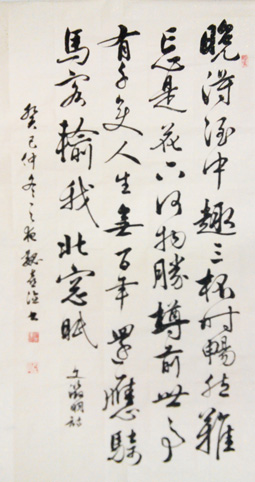 晚得酒中趣三杯时暢然難
忘是花下何物勝樽前世事
有千變人生無百年還應騎
馬客輸我北窓眠
文徵明詩
癸巳仲冬之夜魏書